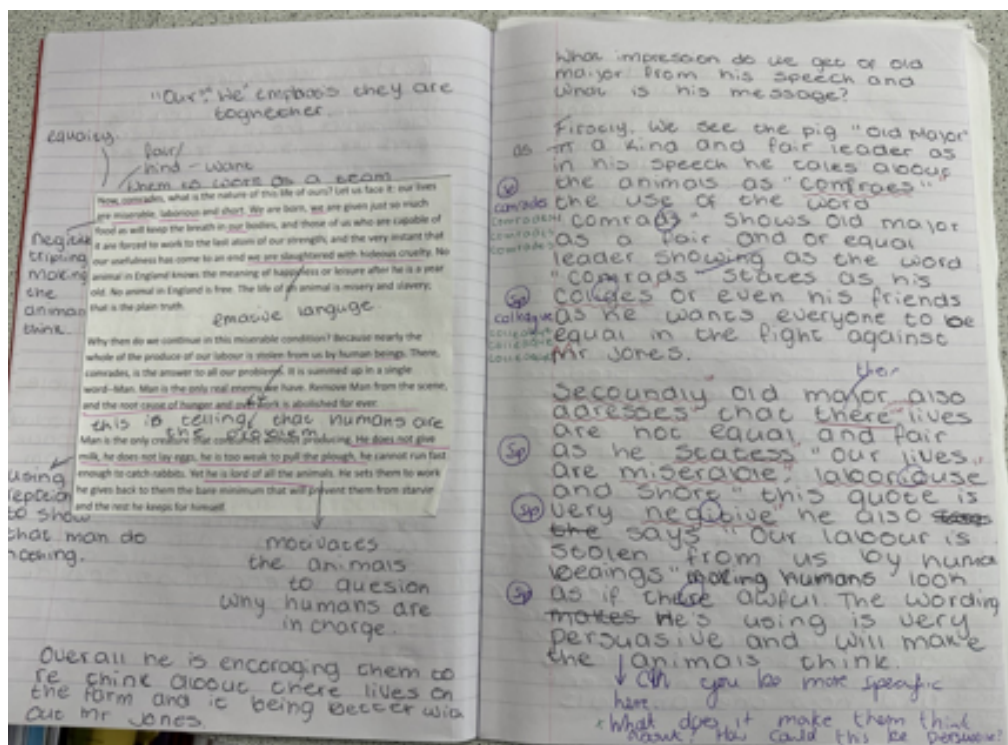 "Our" "We" emphasis they are
toghether.
equality.
fair/
kind - want
them to work as a team
Now, comrades, what is the nature of this life of ours? Let us face it: our lives
are miserable, laborious and short. We are born, we are given just so much
food as will keep the breath in our bodies, and those of us who are capable of
it are forced to work to the last atom of our strength, and the very instant that
our usefulness has come to an end we are slaughtered with hideous cruelty. No
animal in England knows the meaning of happiness or leisure after he is a year
old. No animal in England is free. The life of an animal is misery and slavery;
that is the plain truth.
tripling
making
the
animan
think.
emotive languge.
Why then do we continue in this miserable condition? Because nearly the
whole of the produce of our labour is stolen from us by human beings. There,
comrades, is the answer to all our problems. It is summed up in a single
word–Man. Man is the only real enemy we have. Remove Man from the scene,
and the root cause of hunger and overwork is abolished for ever.
this is telling that humans are
the problem
Man is the only creature that consumes without producing. He does not give
milk, he does not lay eggs, he is too weak to pull the plough, he cannot run fast
enough to catch rabbits. Yet he is lord of all the animals. He sets them to work
he gives back to them the bare minimum that will prevent them from starvin
and the rest he keeps for himself.
using
to show
that man do
nothing.
motivates
the animals
to quesion
why humans are
in charge.
Overall he is encoraging them to
re think about there lives on
the farm and it being better with
out Mr Jones.
What impression do we get of old
major from his speech and
what is his message?
Firstly, we see the pig "Old Major"
as a kind and fair leader as
in his speech he cales about
the animals as "comraes"
sp
comrades the use of the word
comrades
comrades
comrades
shows Old major
as a fair and or equal
leader showing as the word
"comrads" states as his
sp
colleague
colleague
colleague
colleague
or even his friends
as he wants everyone to be
equal in the fight against
Mr Jones.
their
Secoundly old major also
adresses that there lives
are not equal and fair
sp as he statess "our lives
are miserable, laboriouse
and short" this quote is
sp very negitive" he also
the says "Our labour is
stolen from us by huma
beaings" making humans look
sp as if there awful. The wording
makes He's using is very
persuasive and will make
the animals think.
Can you be more specific
here.
* What does it make them think
about? How could this be persuasive?